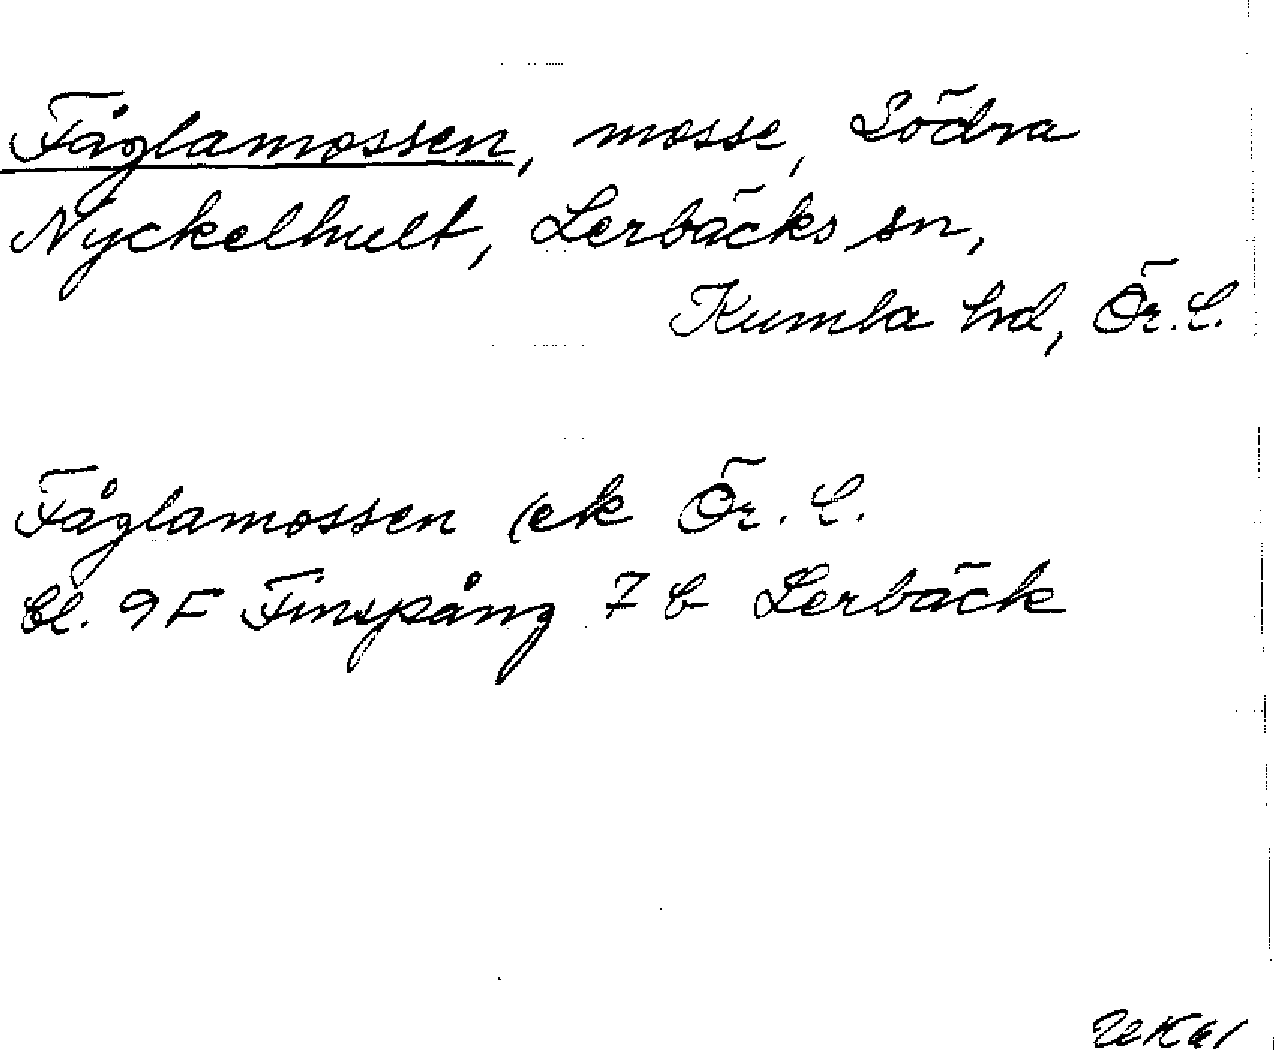 Fåglamossen, mosse, Södra
Nyckelhult, Lerbäcks sn,
Kumla hd, Ör. L.
Fåglamossen (ek Ör. L.
bl. 9F Finspång 7 b Lerbäck